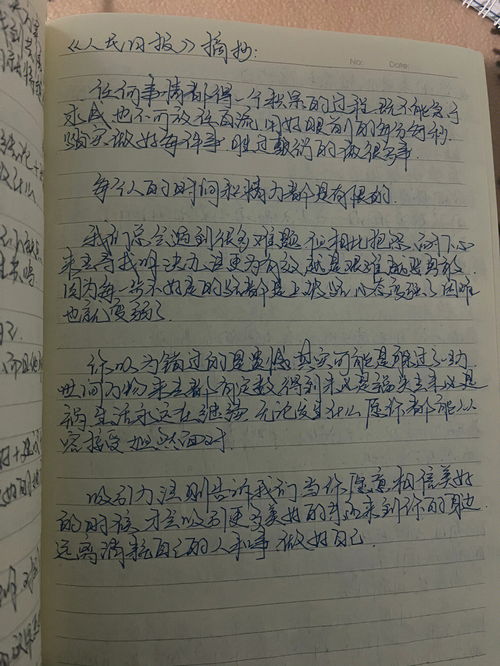 《人民日报》摘抄:
No:    Date:
任何事情都得一个积累的过程 既不能急于
求成 也不可放任自流 用好眼前的每分每秒
踏实做好每件事 胜过敷衍的做很多事
每个人的时间和精力都是有限的.
我们总会遇到很多难题 但相比抱怨 静下心
来去寻找解决办法更为有效 越是艰难越要努力
因为每一步不好走的路都是上坡路 心态变强了 困难
也就变弱了
你以为错过的是遗憾 其实可能是躲过了一劫
世间万物来去都有定数 得到未必是福 失去未必是
祸 生活永远在继续 无论发生什么 愿你都能从
容接受 坦然面对
吸引力法则告诉我们 当你愿意相信美好
的时候 才会吸引更多美好的事物来到你的身边
远离消耗自己的人和事 做好自己.